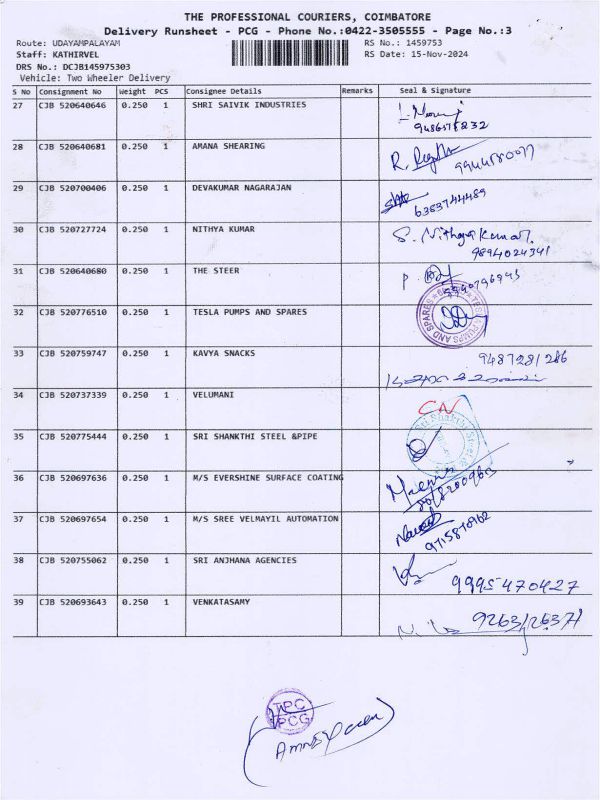 THE PROFESSIONAL COURIERS, COIMBATORE
Delivery Runsheet - PCG - Phone No.:0422-3505555 - Page No.:3
Route: UDAYAMPALAYAM
RS No.: 1459753
Staff: KATHIRVEL
RS Date: 15-Nov-2024
DRS No.: DCJB145975303
Vehicle: Two Wheeler Delivery
S No Consignment No Weight PCS Consignee Details Remarks Seal & Signature
27 CJB 520640646 0.250 1 SHRI SAIVIK INDUSTRIES
28 CJB 520640681 0.250 1 AMANA SHEARING
R.
29 CJB 520700406 0.250 1 DEVAKUMAR NAGARAJAN
6383744489
30 CJB 520727724 0.250 1 NITHYA KUMAR
S. Nithya Kumar.
9894024341
31 CJB 520640680 0.250 1 THE STEER
P.
32 CJB 520776510 0.250 1 TESLA PUMPS AND SPARES
TESLA PUMPS AND SPARES
33 CJB 520759747 0.250 1 KAVYA SNACKS
9487281286
34 CJB 520737339 0.250 1 VELUMANI
CN
35 CJB 520775444 0.250 1 SRI SHANKTHI STEEL &PIPE
36 CJB 520697636 0.250 1 M/S EVERSHINE SURFACE COATING
37 CJB 520697654 0.250 1 M/S SREE VELMAYIL AUTOMATION
38 CJB 520755062 0.250 1 SRI ANJHANA AGENCIES
9995470427
39 CJB 520693643 0.250 1 VENKATASAMY
TPC
PCG